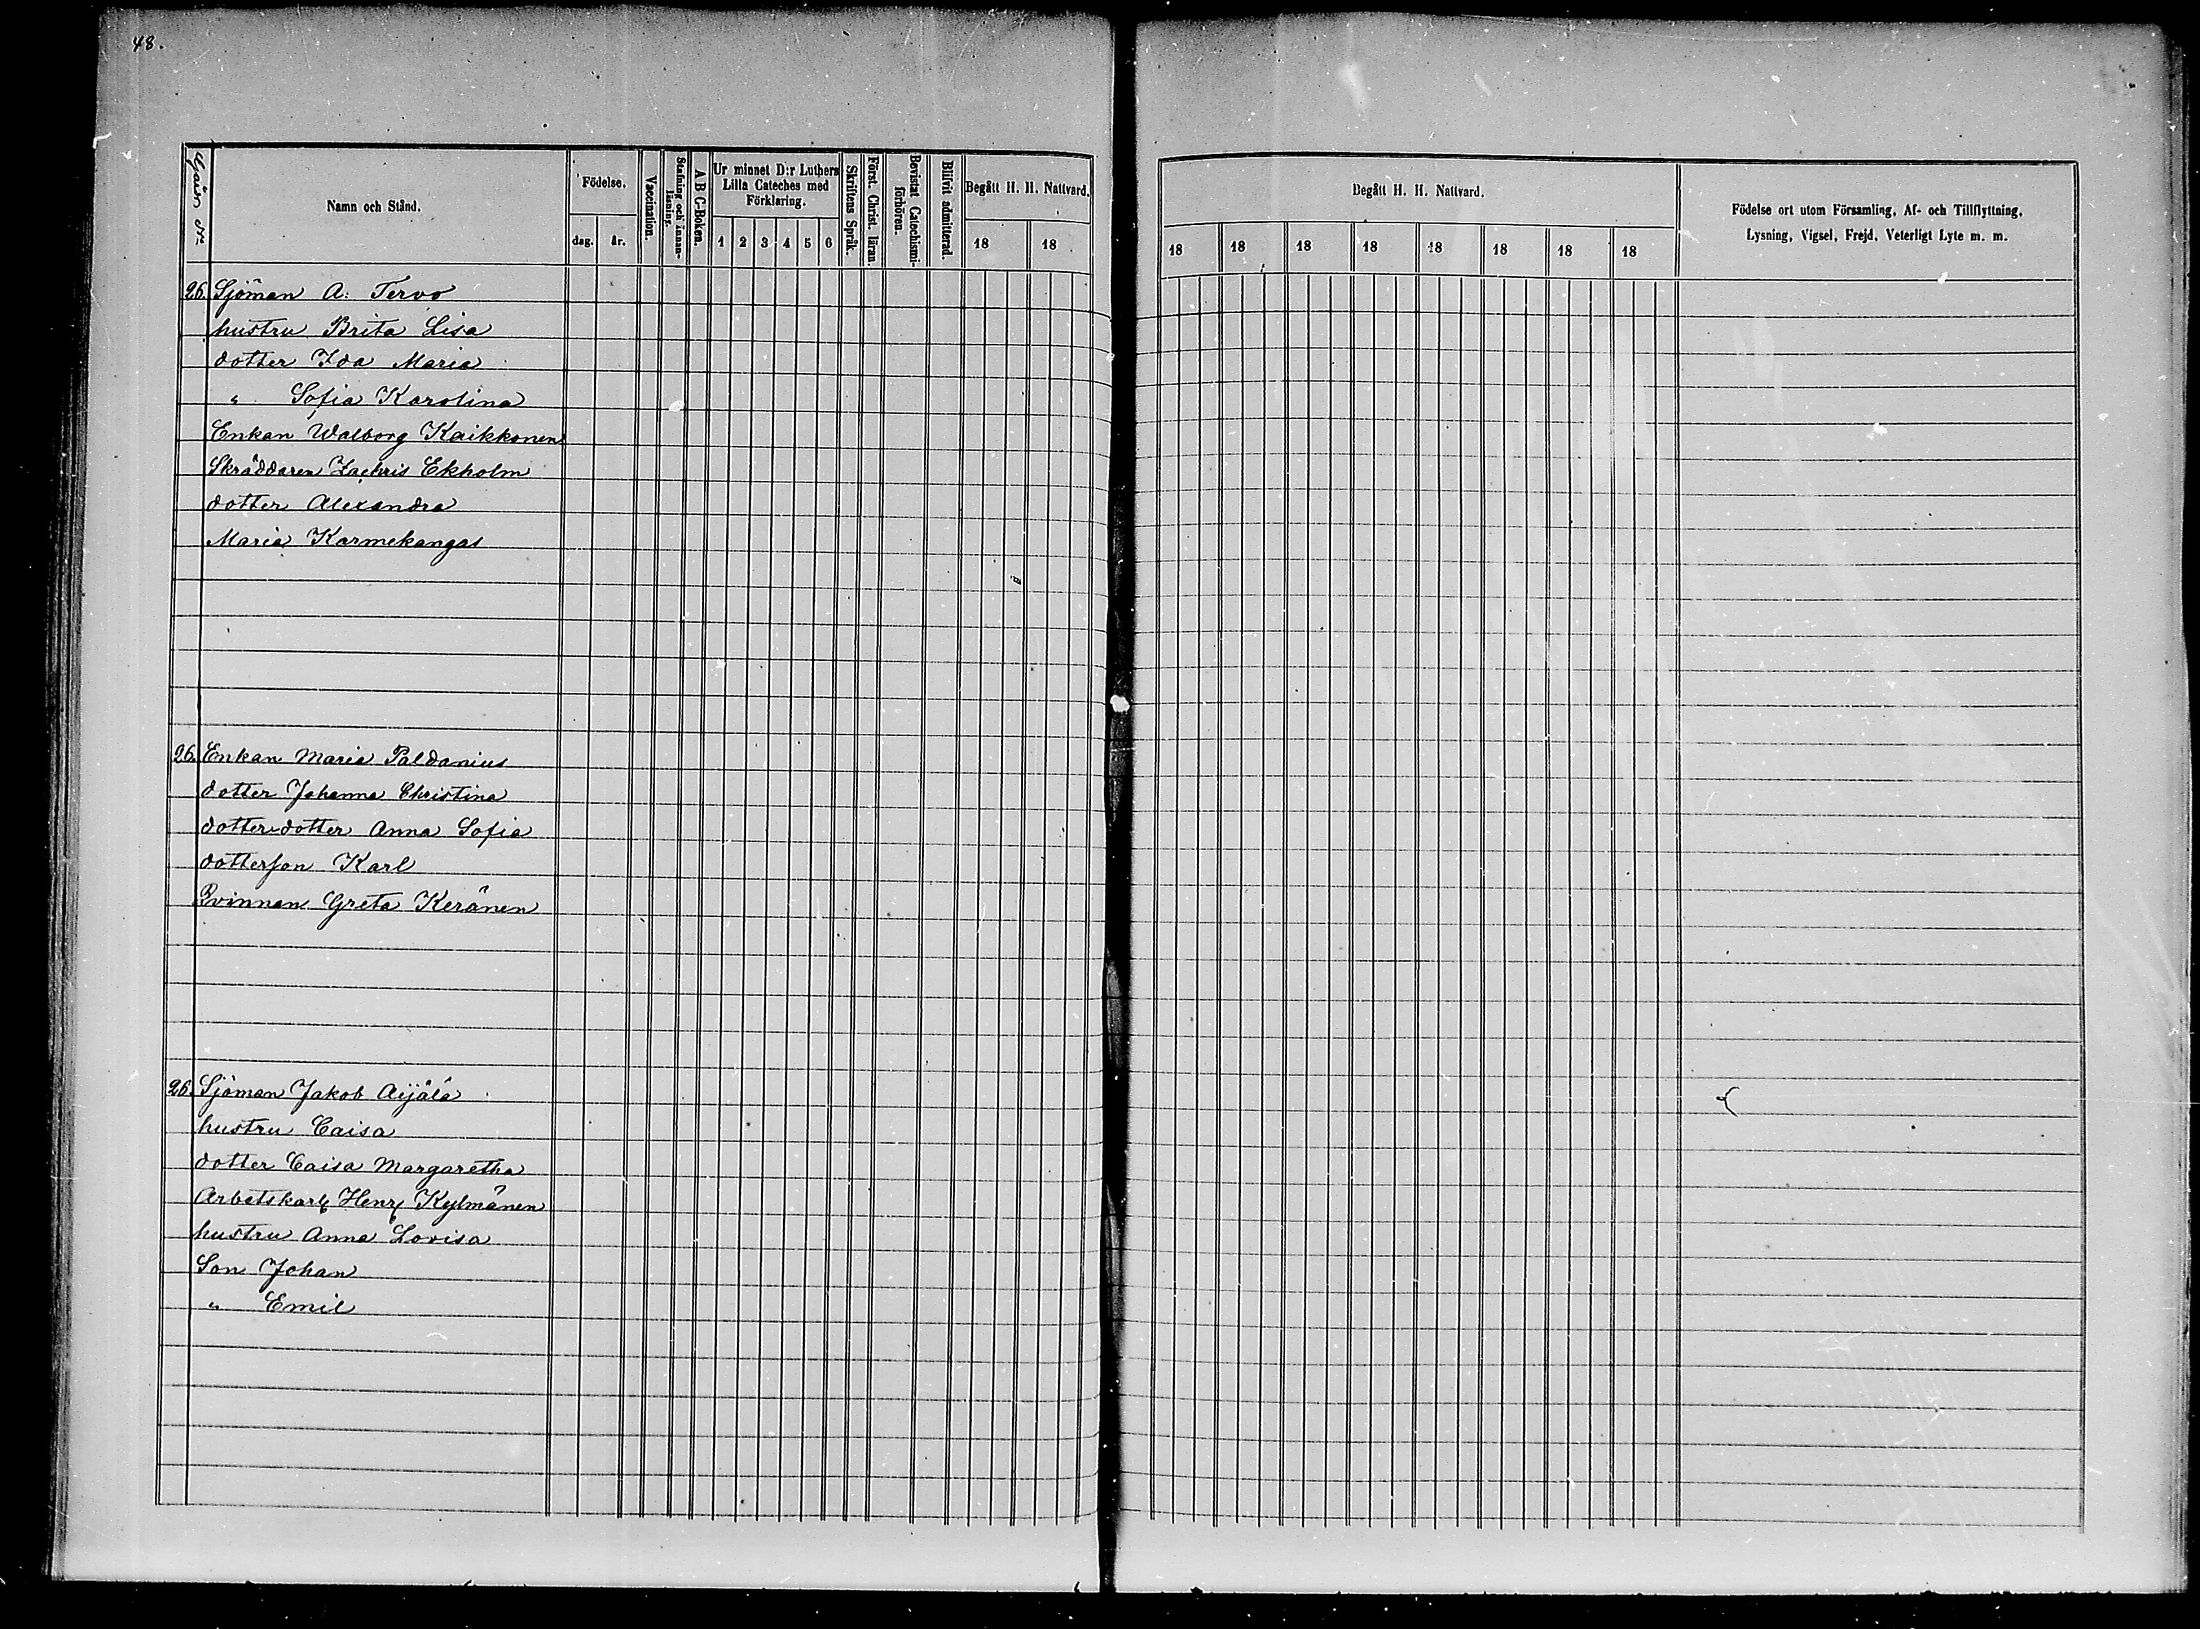 48.
Gård №
Namn och Stånd.
Födelse.
dag. år.
Vaccination.
Stafning och innan-
läsning.
A B C-Boken.
Ur minnet D:r Luthers
Lilla Cateches med
Förklaring.
1 2 3 4 5 6
Skriftens Språk.
Först. Christ. läran.
Bevistat Catechismi-
förhören.
Blifvit admitterad.
Begått H. H. Nattvard.
18 18
Begått H. H. Nattvard.
18 18 18 18 18 18 18 18
Födelse ort utom Församling, Af- och Tillflyttning,
Lysning, Vigsel, Frejd, Veterligt Lyte m. m.
26. Sjöman A: Tervo
hustru Brita Lisa
dotter Ida Maria
" Sofia Karolina
Enkan Walborg Kaikkonen
Skräddaren Zachris Ekholm
dotter Alexandra
Maria Karmekangas
26. Enkan Maria Paldanius
dotter Johanna Christina
dotter-dotter Anna Sofia
dotterson Karl
Qvinnan Greta Keränen
26. Sjöman Jakob Äijälä
hustru Caisa
dotter Caisa Margaretha
Arbetskarl Henr Kylmänen
hustru Anna Lovisa
Son Johan
" Emil